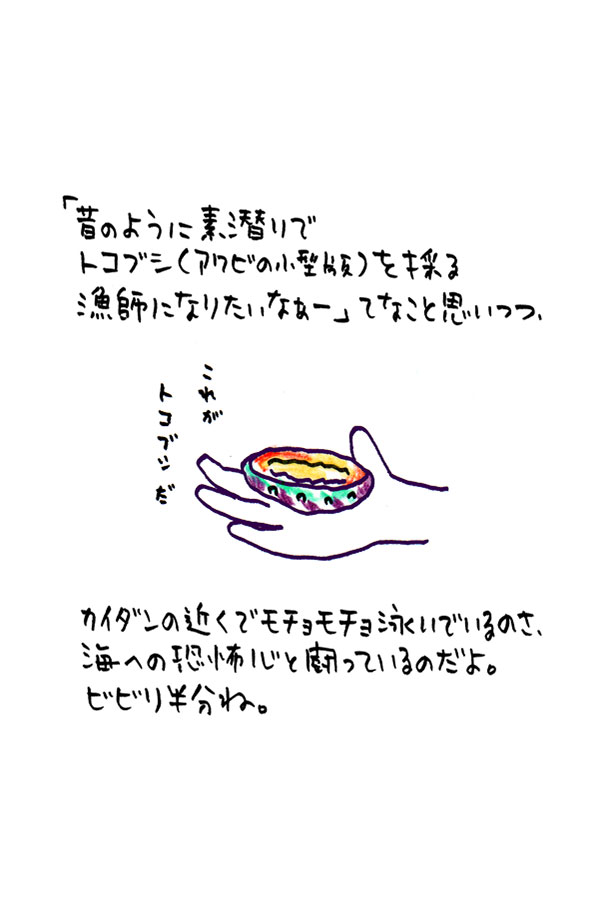 「昔のように素潜りで
トコブシ(アワビの小型版)を採る
漁師になりたいなぁー」てなこと思いつつ、
これが
トコブシだ
カイダンの近くでモチョモチョ泳いでいるのさ、
海への恐怖心と闘っているのだよ。
ビビリ半分ね。